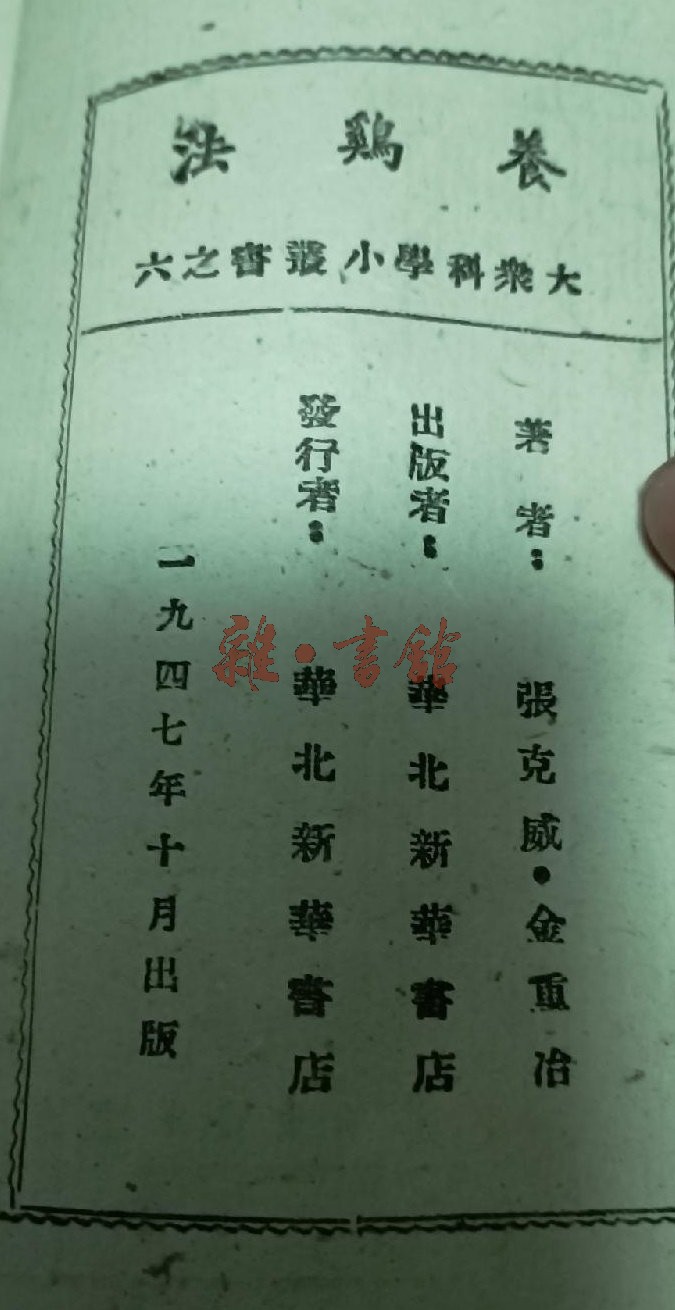 養鷄法
大衆科學小叢書之六
著者：張克威·金重冶
出版者：華北新華書店
發行者：華北新華書店
一九四七年十月出版
雜·書館